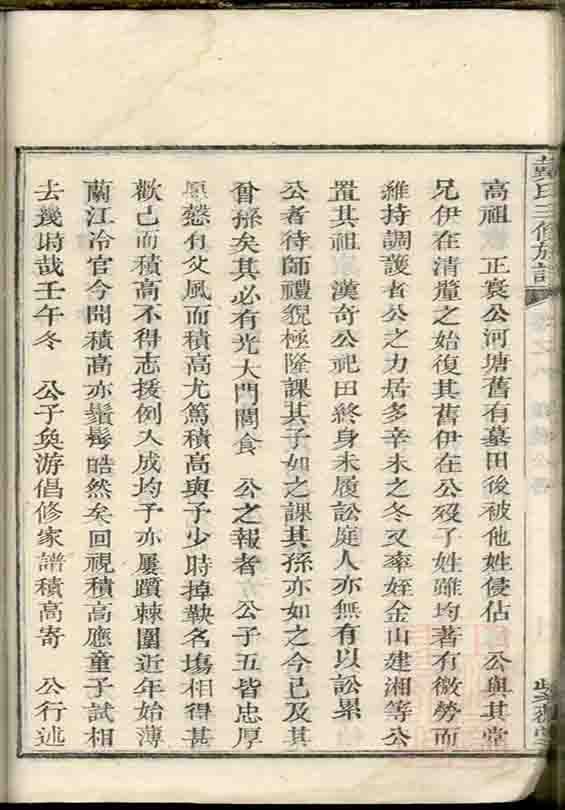 戴氏三修族譜
高祖 正襄公河塘舊有墓田後被他姓侵佔 公與其堂
兄伊在清釐之始復其舊伊在公歿子姓雖均著有微勞而
維持調護者公之力居多辛未之冬又率姪金山建湘等公
置其祖 漢奇公祀田終身未履訟庭人亦無有以訟累
公者待師禮貌極隆課其子如之課其孫亦如之今已及其
曾孫矣其必有光大門閭食 公之報者 公子五皆忠厚
愿慤有父風而積高尤篤積高與予少時掉鞅名場相得甚
歡已而積高不得志援例入成均予亦屢躓棘圍近年始薄
蘭江冷官今聞積高亦鬚髩皓然矣回視積高應童子試相
去幾時哉壬午冬 公子與游倡修家譜積高寄 公行述